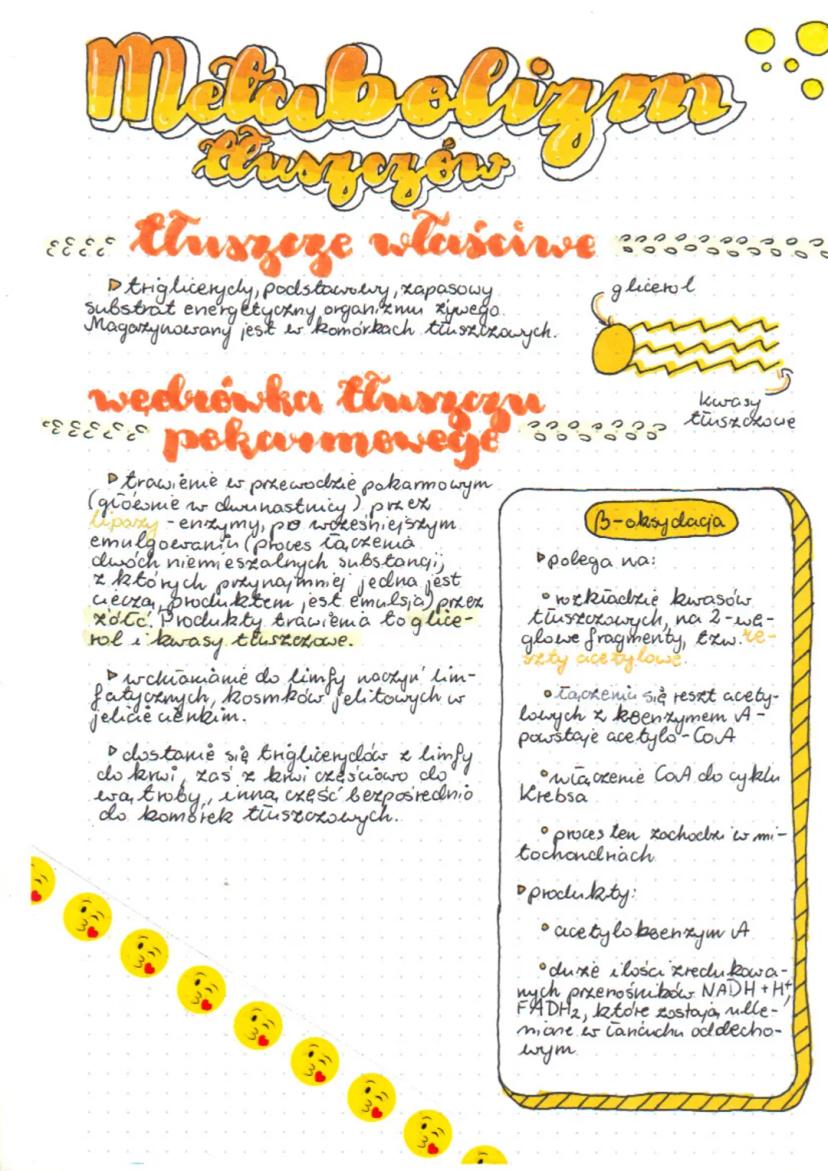 Metabolizm
tłuszczów
tłuszcze właściwe
triglicerydy, podstawowy, zapasowy
substrat energetyczny organizmu żywego.
Magazynowany jest w komórkach tłuszczowych.
glicerol
kwasy
tłuszczowe
wędrówka tłuszczu
pokarmowego
trawienie w przewodzie pokarmowym
(głównie w dwunastnicy) przez
lipazy - enzymy, po wcześniejszym
emulgowaniu (proces łączenia
dwóch niemieszalnych substancji,
z których przynajmniej jedna jest
cieczą, produktem jest emulsja) przez
żółć. Produkty trawienia to glice-
rol i kwasy tłuszczowe.
wchłanianie do limfy naczyń lim-
fatycznych, kosmków jelitowych w
jelicie cienkim.
dostanie się triglicerydów z limfy
do krwi, zaś z krwi częściowo do
wątroby, inna część bezpośrednio
do komórek tłuszczowych.
β-oksydacja
polega na:
• rozkładzie kwasów
tłuszczowych, na 2-wę-
glowe fragmenty, tzw. re-
szty acetylowe.
• łączeniu się reszt acety-
lowych z koenzymem A -
powstaje acetylo-CoA
• włączenie CoA do cyklu
Krebsa
• proces ten zachodzi w mi-
tochondriach
produkty:
• acetylokoenzym A
• duże ilości zredukowa-
nych przenośników NADH + H⁺,
FADH₂, które zostają utle-
nione w łańcuchu oddecho-
wym